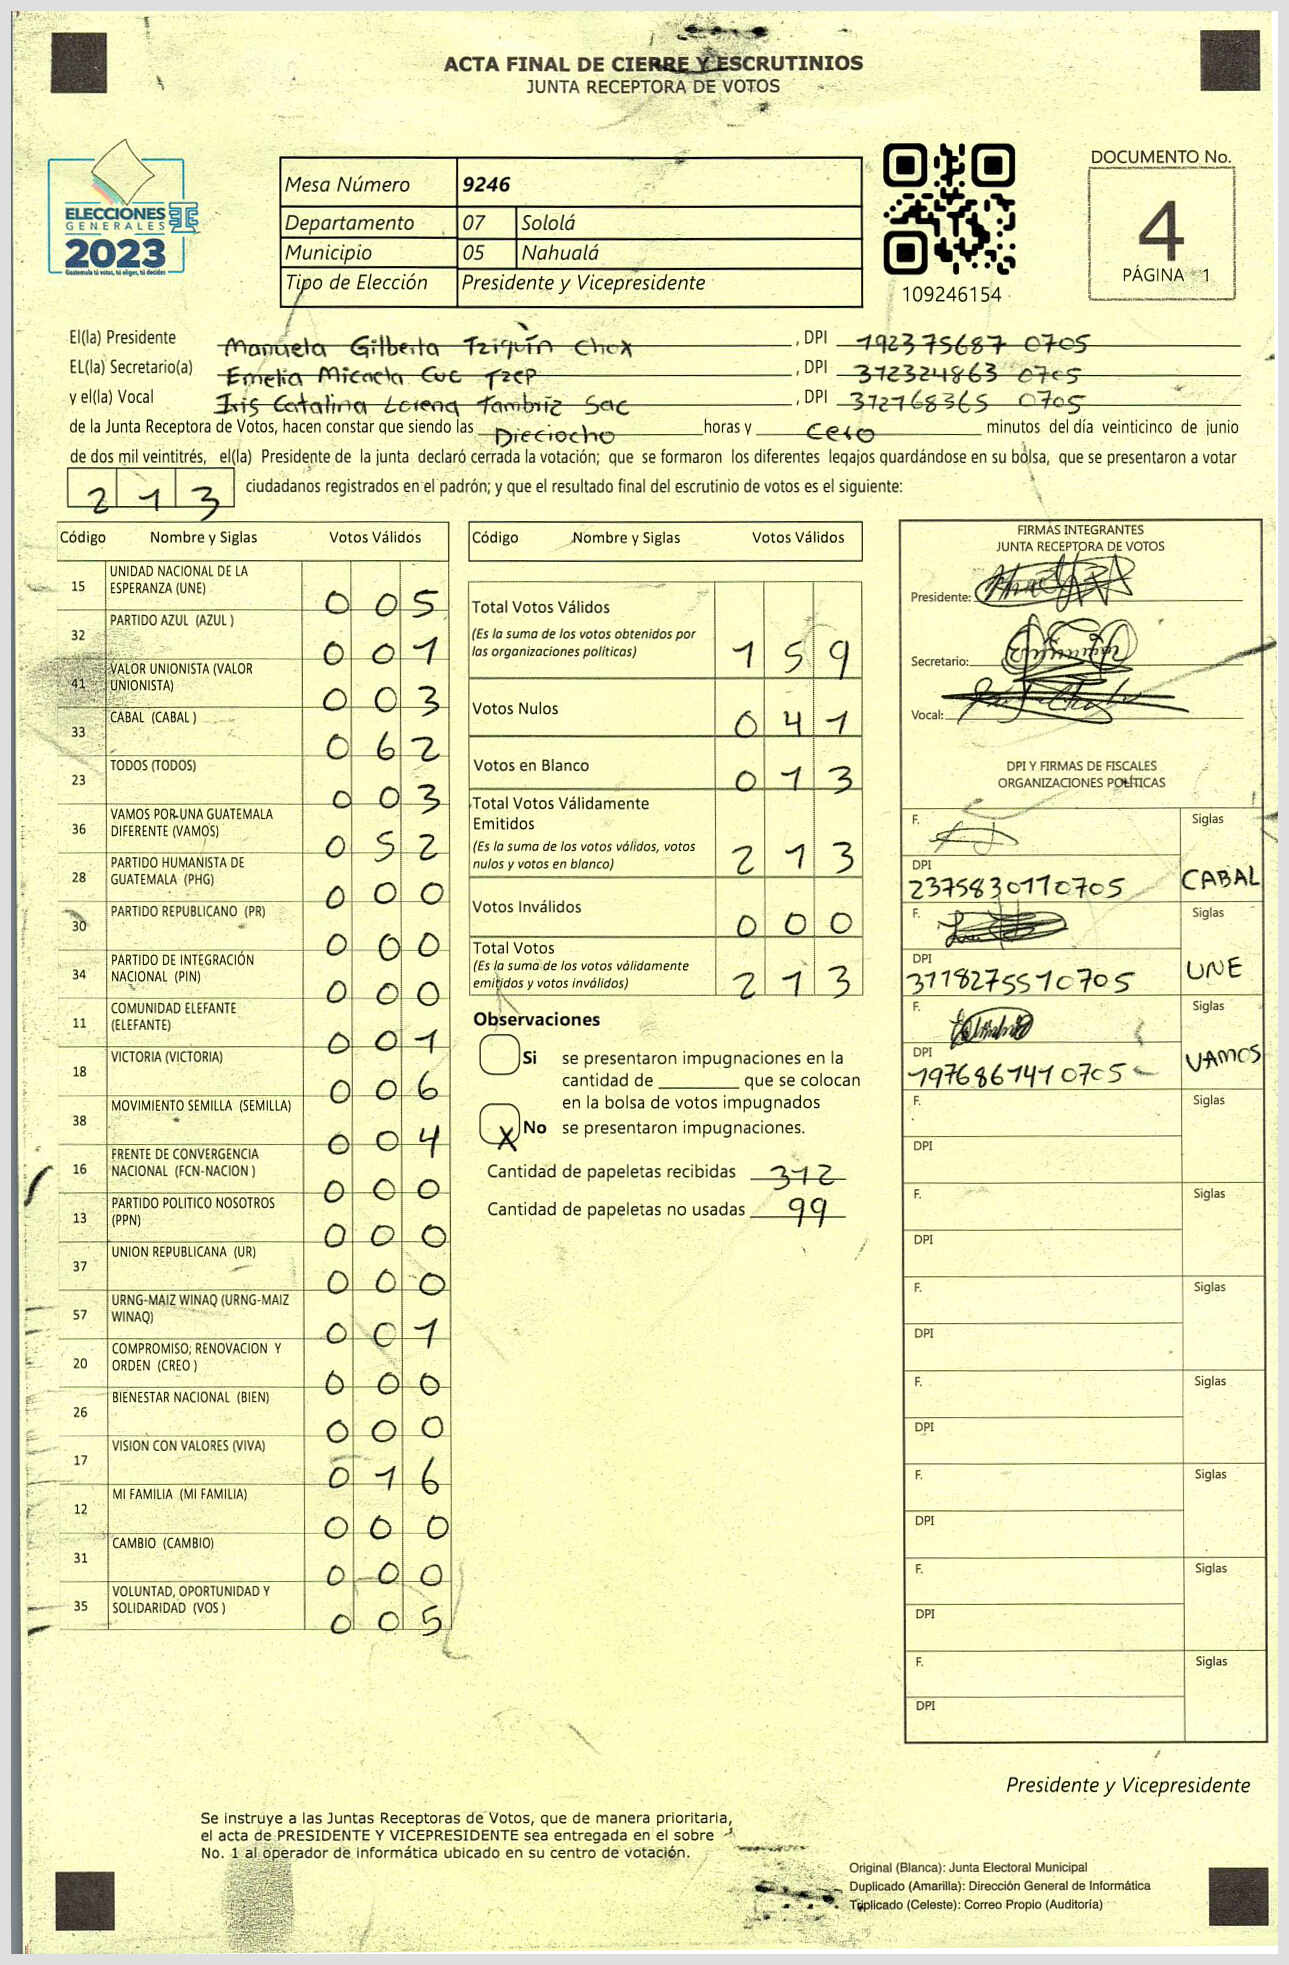 ACTA FINAL DE CIERRE Y ESCRUTINIOS
JUNTA RECEPTORA DE VOTOS
ELECCIONES
GENERALES
2023
Guatemala tú votas, tú eliges, tú decides
Mesa Número 9246
Departamento 07 Sololá
Municipio 05 Nahualá
Tipo de Elección Presidente y Vicepresidente
109246154
DOCUMENTO No.
4
PÁGINA 1
El(la) Presidente Manuela Gilberta Tziquín Chox , DPI 192375687 0705
EL(la) Secretario(a) Emelia Micaela Cuc Tzep , DPI 312324863 0705
y el(la) Vocal Iris Catalina Lorena Tambriz Sac , DPI 372768365 0705
de la Junta Receptora de Votos, hacen constar que siendo las Dieciocho horas y cero minutos del día veinticinco de junio
de dos mil veintitrés, el(la) Presidente de la junta declaró cerrada la votación; que se formaron los diferentes legajos quardándose en su bolsa, que se presentaron a votar
213 ciudadanos registrados en el padrón; y que el resultado final del escrutinio de votos es el siguiente:
Código Nombre y Siglas Votos Válidos
15 UNIDAD NACIONAL DE LA ESPERANZA (UNE) 005
32 PARTIDO AZUL (AZUL ) 001
41 VALOR UNIONISTA (VALOR UNIONISTA) 003
33 CABAL (CABAL ) 062
23 TODOS (TODOS) 003
36 VAMOS POR UNA GUATEMALA DIFERENTE (VAMOS) 052
28 PARTIDO HUMANISTA DE GUATEMALA (PHG) 000
30 PARTIDO REPUBLICANO (PR) 000
34 PARTIDO DE INTEGRACIÓN NACIONAL (PIN) 000
11 COMUNIDAD ELEFANTE (ELEFANTE) 001
18 VICTORIA (VICTORIA) 006
38 MOVIMIENTO SEMILLA (SEMILLA) 004
16 FRENTE DE CONVERGENCIA NACIONAL (FCN-NACION ) 000
13 PARTIDO POLITICO NOSOTROS (PPN) 000
37 UNION REPUBLICANA (UR) 000
57 URNG-MAIZ WINAQ (URNG-MAIZ WINAQ) 001
20 COMPROMISO, RENOVACION Y ORDEN (CREO ) 000
26 BIENESTAR NACIONAL (BIEN) 000
17 VISION CON VALORES (VIVA) 016
12 MI FAMILIA (MI FAMILIA) 000
31 CAMBIO (CAMBIO) 000
35 VOLUNTAD, OPORTUNIDAD Y SOLIDARIDAD (VOS ) 005
Código Nombre y Siglas Votos Válidos
Total Votos Válidos
(Es la suma de los votos obtenidos por
las organizaciones políticas) 159
Votos Nulos 041
Votos en Blanco 013
Total Votos Válidamente
Emitidos
(Es la suma de los votos válidos, votos
nulos y votos en blanco) 213
Votos Inválidos 000
Total Votos
(Es la suma de los votos válidamente
emitidos y votos inválidos) 213
Observaciones
Si se presentaron impugnaciones en la
cantidad de ________ que se colocan
en la bolsa de votos impugnados
X No se presentaron impugnaciones.
Cantidad de papeletas recibidas 312
Cantidad de papeletas no usadas 99
FIRMAS INTEGRANTES
JUNTA RECEPTORA DE VOTOS
Presidente:
Secretario:
Vocal:
DPI Y FIRMAS DE FISCALES
ORGANIZACIONES POLÍTICAS
F. Siglas
DPI
2375830110705 CABAL
F. Siglas
DPI
3118275510705 UNE
F. Siglas
DPI
1976861410705 VAMOS
F. Siglas
DPI
F. Siglas
DPI
F. Siglas
DPI
F. Siglas
DPI
F. Siglas
DPI
F. Siglas
DPI
F. Siglas
DPI
Presidente y Vicepresidente
Se instruye a las Juntas Receptoras de Votos, que de manera prioritaria,
el acta de PRESIDENTE Y VICEPRESIDENTE sea entregada en el sobre
No. 1 al operador de informática ubicado en su centro de votación.
Original (Blanca): Junta Electoral Municipal
Duplicado (Amarilla): Dirección General de Informática
Triplicado (Celeste): Correo Propio (Auditoría)